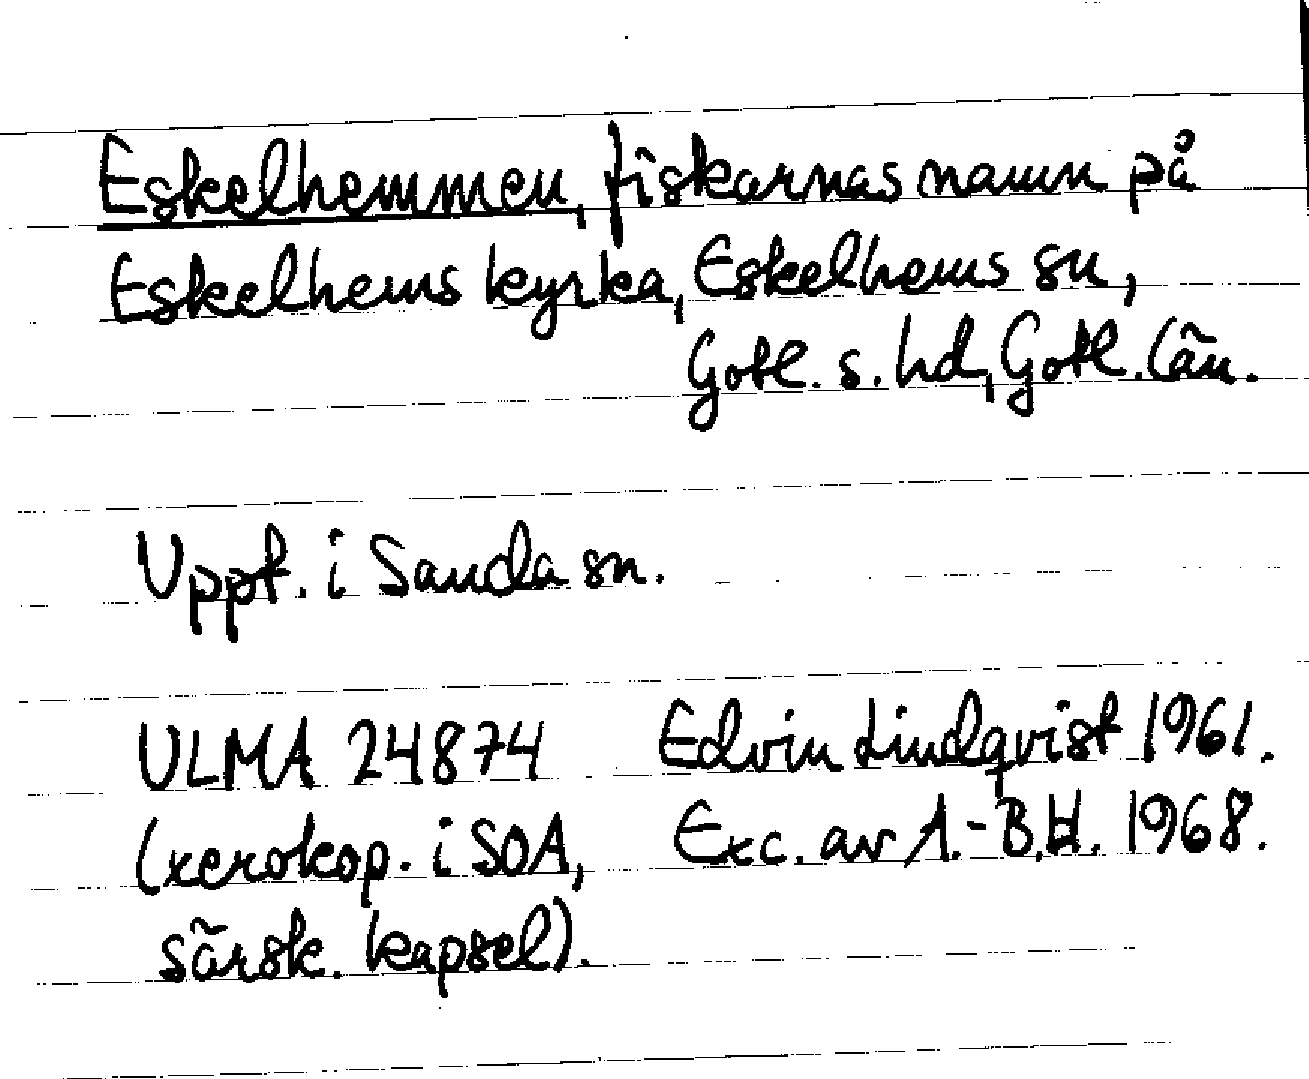 Eskelhemmen, fiskarnas namn på
Eskelhems kyrka, Eskelhems sn,
Gotl. s. hd, Gotl. län.
Uppt. i Sanda sn.
ULMA 24874 Edvin Lindqvist 1961.
(xerokop. i SOA, Exc. av A.-B.H. 1968.
särsk. kapsel).